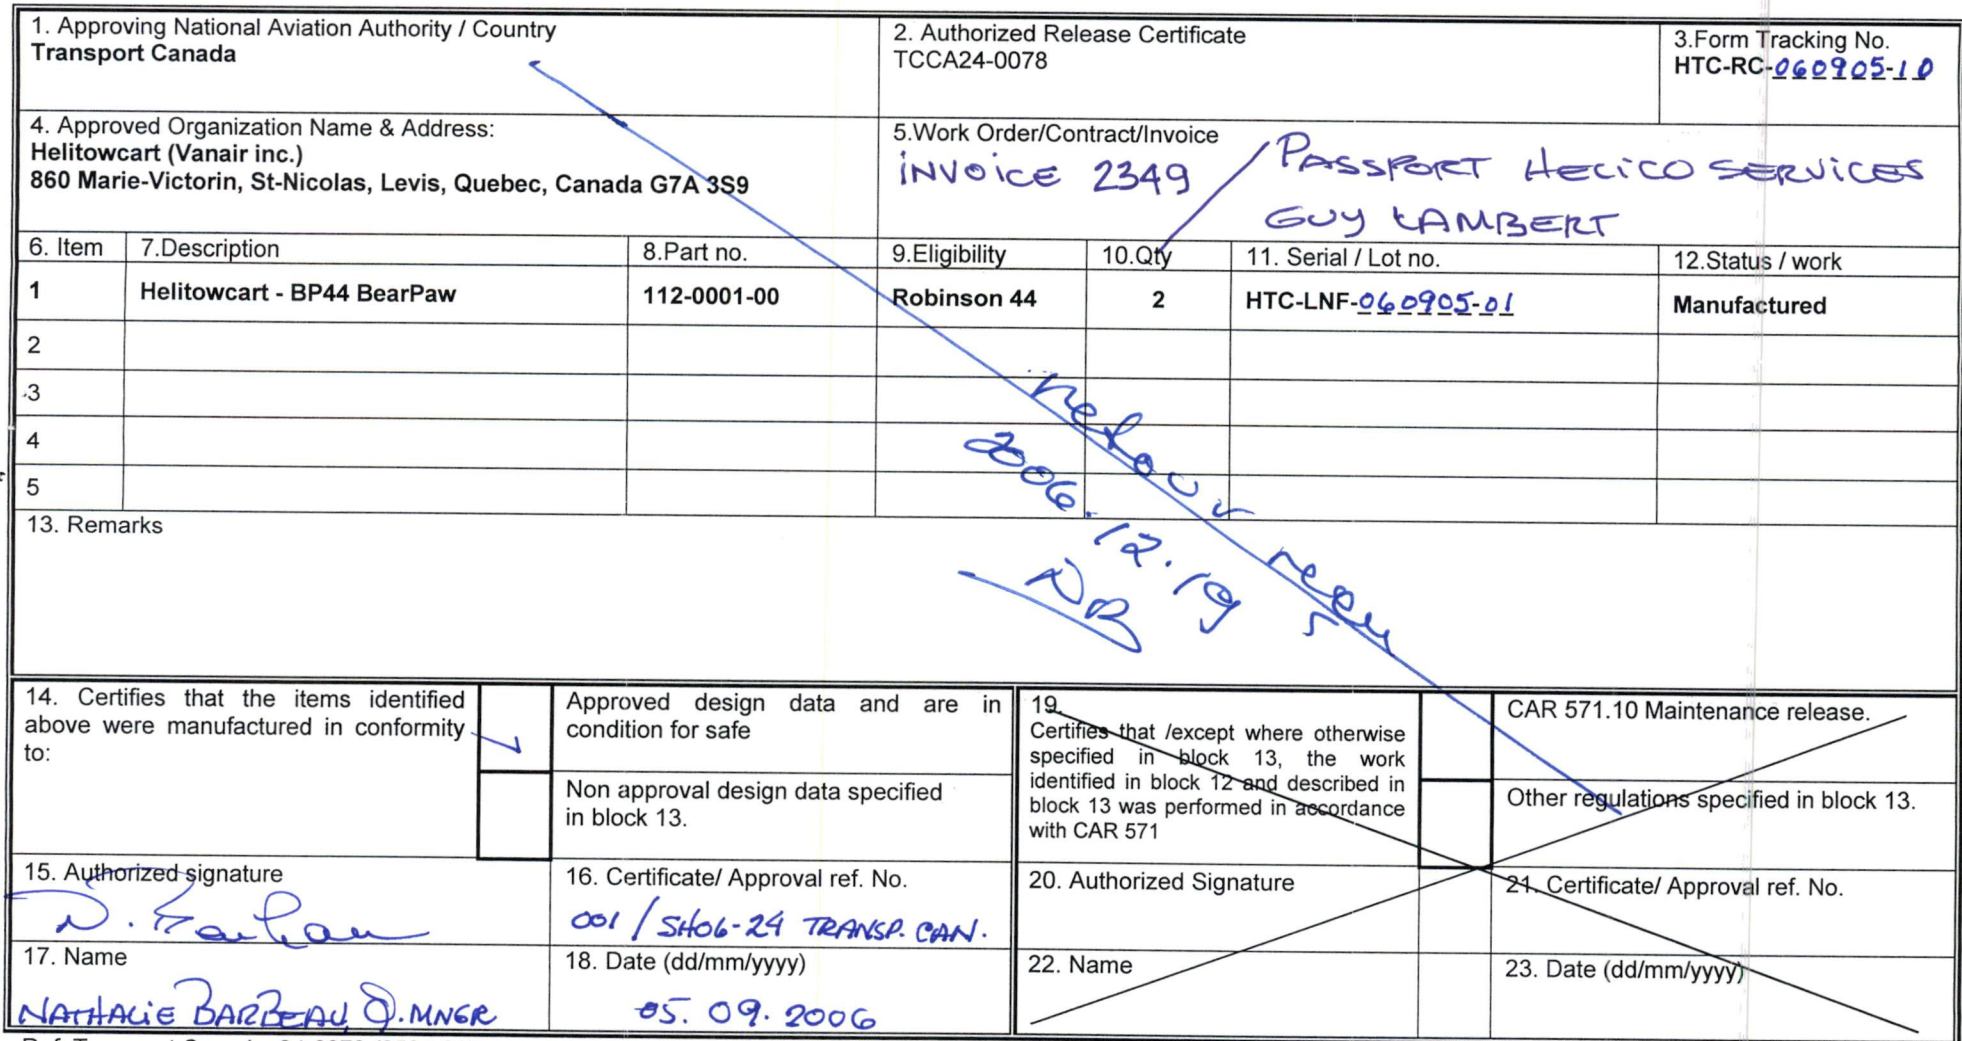 1. Approving National Aviation Authority / Country
Transport Canada
2. Authorized Release Certificate
TCCA24-0078
3.Form Tracking No.
HTC-RC-060905-10
4. Approved Organization Name & Address:
Helitowcart (Vanair inc.)
860 Marie-Victorin, St-Nicolas, Levis, Quebec, Canada G7A 3S9
5.Work Order/Contract/Invoice
INVOICE 2349 / PASSPORT HELICO SERVICES
GUY LAMBERT
6. Item 7.Description 8.Part no. 9.Eligibility 10.Qty 11. Serial / Lot no. 12.Status / work
1 Helitowcart - BP44 BearPaw 112-0001-00 Robinson 44 2 HTC-LNF-060905-01 Manufactured
2
3
4
5
retour reçu
2006.12.19
NB
13. Remarks
14. Certifies that the items identified
above were manufactured in conformity
to:
Approved design data and are in
condition for safe
Non approval design data specified
in block 13.
19.
Certifies that /except where otherwise
specified in block 13, the work
identified in block 12 and described in
block 13 was performed in accordance
with CAR 571
CAR 571.10 Maintenance release.
Other regulations specified in block 13.
15. Authorized signature
16. Certificate/ Approval ref. No.
001 / SH06-24 TRANSP. CAN.
20. Authorized Signature
21. Certificate/ Approval ref. No.
17. Name
NATHALIE BARBEAU, Q.MNGR
18. Date (dd/mm/yyyy)
05.09.2006
22. Name
23. Date (dd/mm/yyyy)